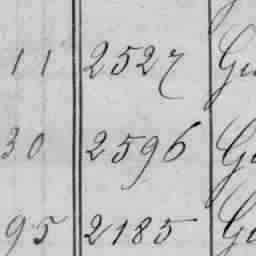 11 2527
30 2596
95 2185